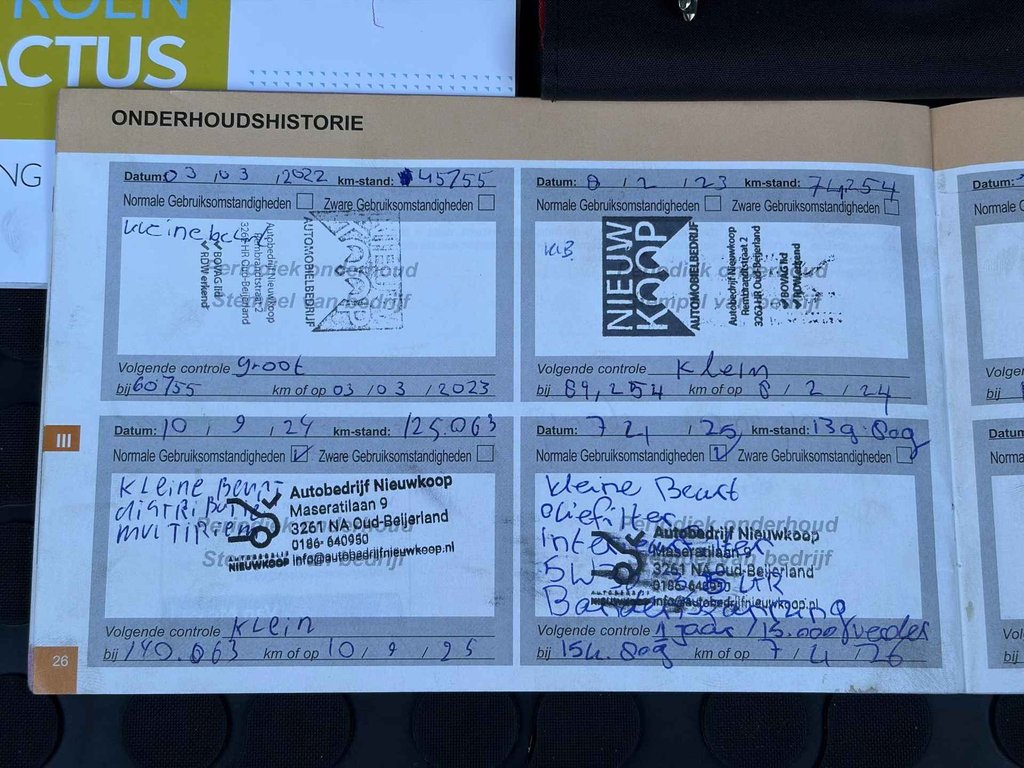 ROEN
ACTUS
NG
ONDERHOUDSHISTORIE
Datum: 03 / 03 / 2022 km-stand: 45755
Normale Gebruiksomstandigheden Zware Gebruiksomstandigheden
Kleine beurt
NIEUW
KOOP
AUTOMOBIELBEDRIJF
Autobedrijf Nieuwkoop
Rembrandtstraat 2
3261 HR Oud-Beijerland
BOVAG lid
RDW erkend
Periodiek onderhoud
Stempel van bedrijf
Volgende controle groot
bij 60755 km of op 03 / 03 / 2023
Datum: 8 / 2 / 23 km-stand: 74,254
Normale Gebruiksomstandigheden Zware Gebruiksomstandigheden
KlB.
NIEUW
KOOP
AUTOMOBIELBEDRIJF
Autobedrijf Nieuwkoop
Rembrandtstraat 2
3261 HR Oud-Beijerland
BOVAG lid
RDW erkend
Periodiek onderhoud
Stempel van bedrijf
Volgende controle Klein
bij 89,254 km of op 8 / 2 / 24
III
Datum: 10 / 9 / 24 km-stand: 125.063
Normale Gebruiksomstandigheden Zware Gebruiksomstandigheden
Kleine Beurt
DISTRIBUTIE
MULTIRIEM
Autobedrijf Nieuwkoop
Maseratilaan 9
3261 NA Oud-Beijerland
0186-640950
info@autobedrijfnieuwkoop.nl
AUTOBEDRIJF
NIEUWKOOP
Periodiek onderhoud
Stempel van bedrijf
Volgende controle Klein
bij 140.063 km of op 10 / 9 / 25
Datum: 7 4 / 25 km-stand: 139.809
Normale Gebruiksomstandigheden Zware Gebruiksomstandigheden
Kleine Beurt
Oliefilter
5W30
Autobedrijf Nieuwkoop
Maseratilaan 9
3261 NA Oud-Beijerland
0186-640950
info@autobedrijfnieuwkoop.nl
NIEUWKOOP
Periodiek onderhoud
Stempel van bedrijf
Volgende controle 1 jaar / 15.000 verder
bij 154.809 km of op 7 / 4 / 26
26
Datum:
Normale G
Volge
bij
Datum
Norma
Vol
bij